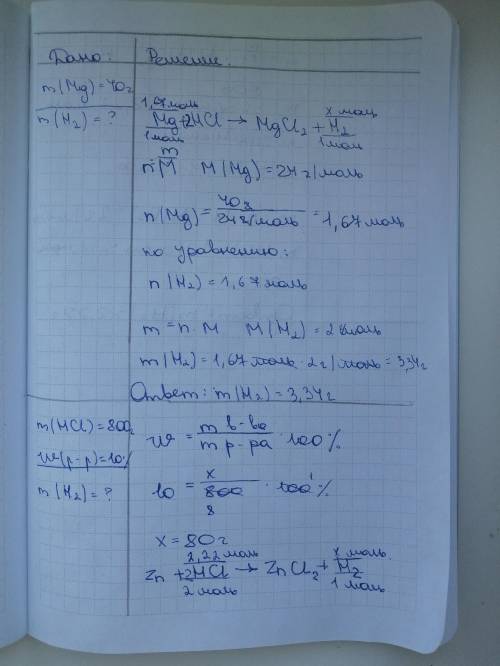 Дано: Решение.
m(Mg)=40г
m(H₂)=?
1,67 моль x моль
Mg+2HCl → MgCl₂+H₂
1моль 1моль
n=m/M M(Mg)=24г/моль
n(Mg)=40г/24г/моль=1,67моль
по уравнению:
n(H₂)=1,67моль
m=n·M M(H₂)=2г/моль
m(H₂)=1,67моль·2г/моль=3,34г
Ответ: m(H₂)=3,34г
m(HCl)=800г
w(р-р)=10%
m(H₂)=?
w=m в-ва/m р-ра·100%
10=x/800·100%
8 1
x=80г
2,22моль x моль
Zn+2HCl → ZnCl₂+H₂
2моль 1моль